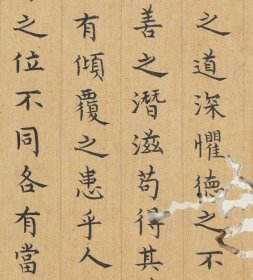 之道深懼德之不
善之潛滋苟得其
有傾覆之患乎人
之位不同各有當